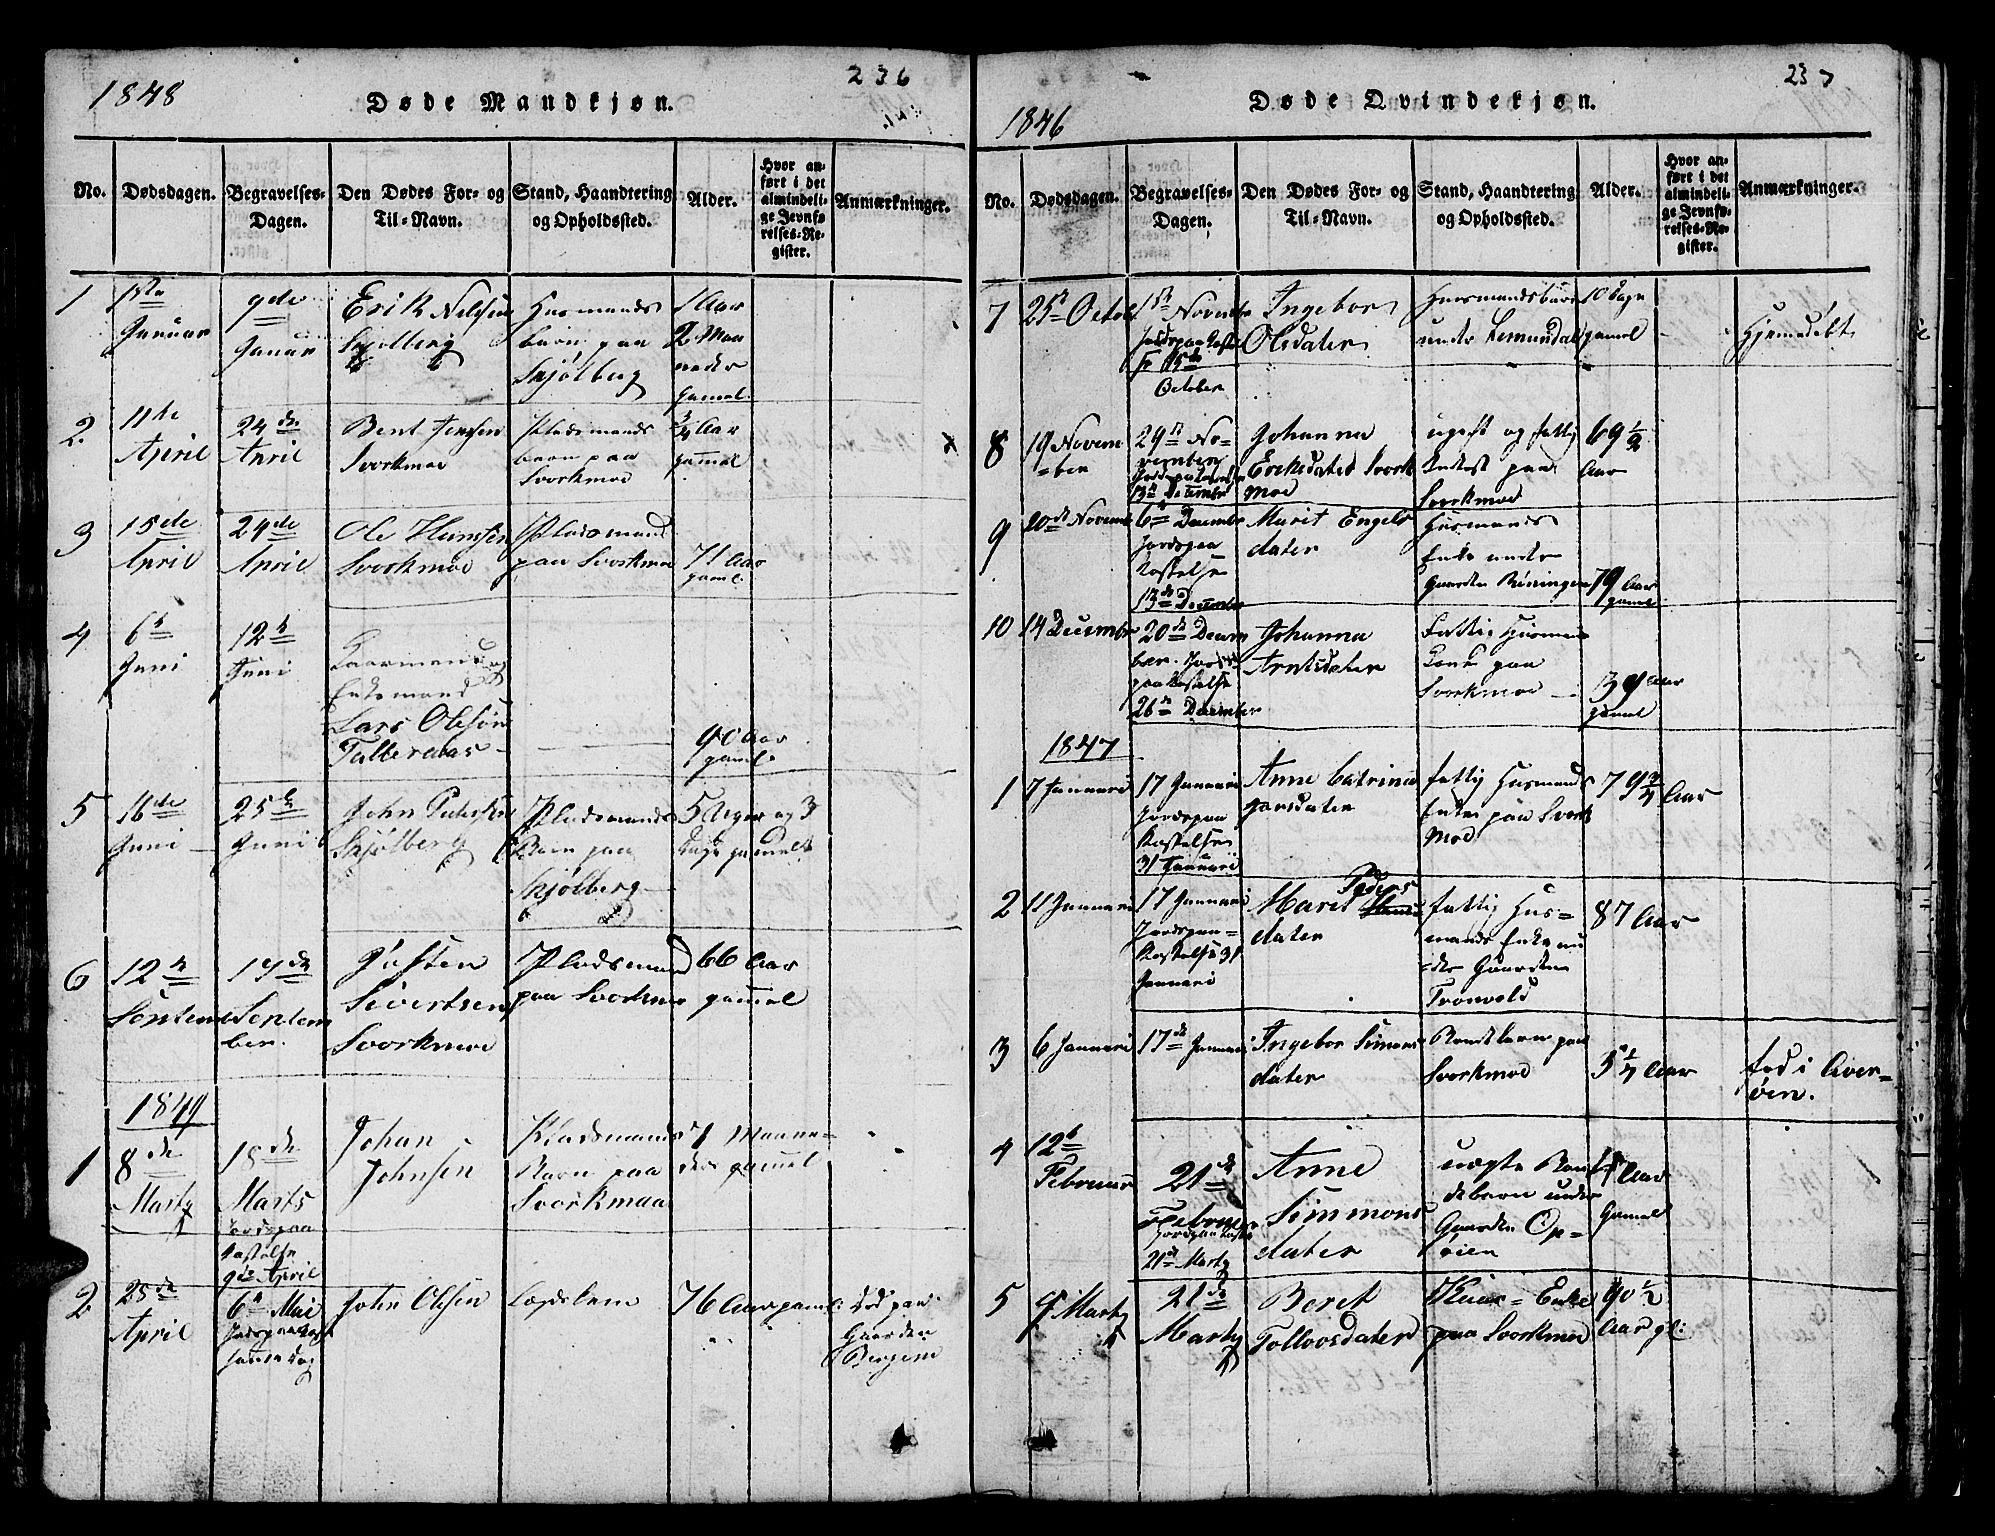 1848
236
Døde Mandkjøn.
No.
Dødsdagen.
Begravelses-
Dagen.
Den Dødes For- og
Til-Navn.
Stand, Haandtering
og Opholdssted.
Alder.
Hvor an-
ført i det
almindeli-
ge Jevnfø-
relses-Re-
gister.
Anmærkninger.
1
1ste
Januar
9de
Januar
Erik Nilssen
Skjølberg
Husmands
barn paa
Skjølberg
1 Aar
2 Maa
neder
gamel
2
11te
April
24de
April
Bent Jenssen
Svorkmoe
Pladsmands
barn paa
Svorkmoe
3/4 Aar
gammel
3
15de
April
24de
April
Ole Hanssen
Svorkmoe
Pladsmand
paa Svorkmoe
71 Aar
gaml.
4
6te
Juni
12te
Juni
Kaarmand og
Enkemand
Lars Olesøn
Tølleraas
90 Aar
gaml.
5
16de
Juni
25de
Juni
John Pedersen
Skjølberg
Pladsmands
Barn paa
Skjølberg
5 Uger og 3
Dage gammelt
6
12te
Septem
17de
Septem
ber.
Josten
Sivertsen
Svorkmoe
Pladsmand
paa Svorkmoe
66 Aar
gammel
1849
1
8de
Marty
18de
Marts
Jordspaa
kastelse
9de April
Johan
Johnsen
Pladsmands
Barn paa
Svorkmoe
7 Maane-
der gammel
2
25de
April
6te Mai
Jordspaakast
samme Dag
John Olsen
Lægdslem
76 Aar gaml.
Død paa
Gaarden
Bergem
1846
237
Døde Qvindekjøn.
No.
Dødsdagen.
Begravelses-
Dagen.
Den Dødes For- og
Til-Navn.
Stand, Haandtering
og Opholdssted.
Alder.
Hvor an-
ført i det
almindeli-
ge Jevnfø-
relses-Re-
gister.
Anmærkninger.
7
25de Octob
1ste Novembr
Jordspaakaste
15de
October
Ingebor
Olsdater
Huusmandsbarn
under Lomundal
10 Dage
gamel
Hjemedøbt
8
19 Novem
=ber
29de No-
vember
13de Decembr
Johanna
Eriksdater Svork
moe
ugift og fattig
paa
Svorkmoe
69 1/2
Aar
9
20de Novemb
6te Decembr
Jordspaa
kastelse
13de Decembr
Marit Engels
dater
Husmands
Enke under
Gaarden Rønningen
79 Aar
gamel
10
14 Decembr
20de Decem
ber. Jords
paakastelse
26de December
Johanna
Arntsdater
Fattig Husmands
Kone paa
Svorkmoe
39 Aar
gamel
1847
1
7 Januari
17 Januari
Jordspaa
kastelse
31 Januari
Anne Catrina
Larsdater
fattig Husmands
Enke paa Svork
moe
79 3/4 Aar
2
11 Januari
17 Januari
Jordspaa-
kastelse 31
Januari
Marit Peders
dater
fattig Hus=
mands Enke un
=der Gaarden
Tronvold
87 Aar
3
6 Januari
17de Januari
Ingebor Simons
dater
Bondebarn paa
Svorkmoe
3 1/4 Aar
død i Aver=
øen.
4
12te
Februar
21de
Februar
Jordspaakaste
21de Marty
Anne
Simmons
dater
uægte Bon
debarn under
Gaarden Op=
rien
Aar
Gamel
5
9 Marty
21de
Marty
Beret
Tollovsdater
Kaar=Enke
paa Svorkmoe
90 1/2
Aar gl.